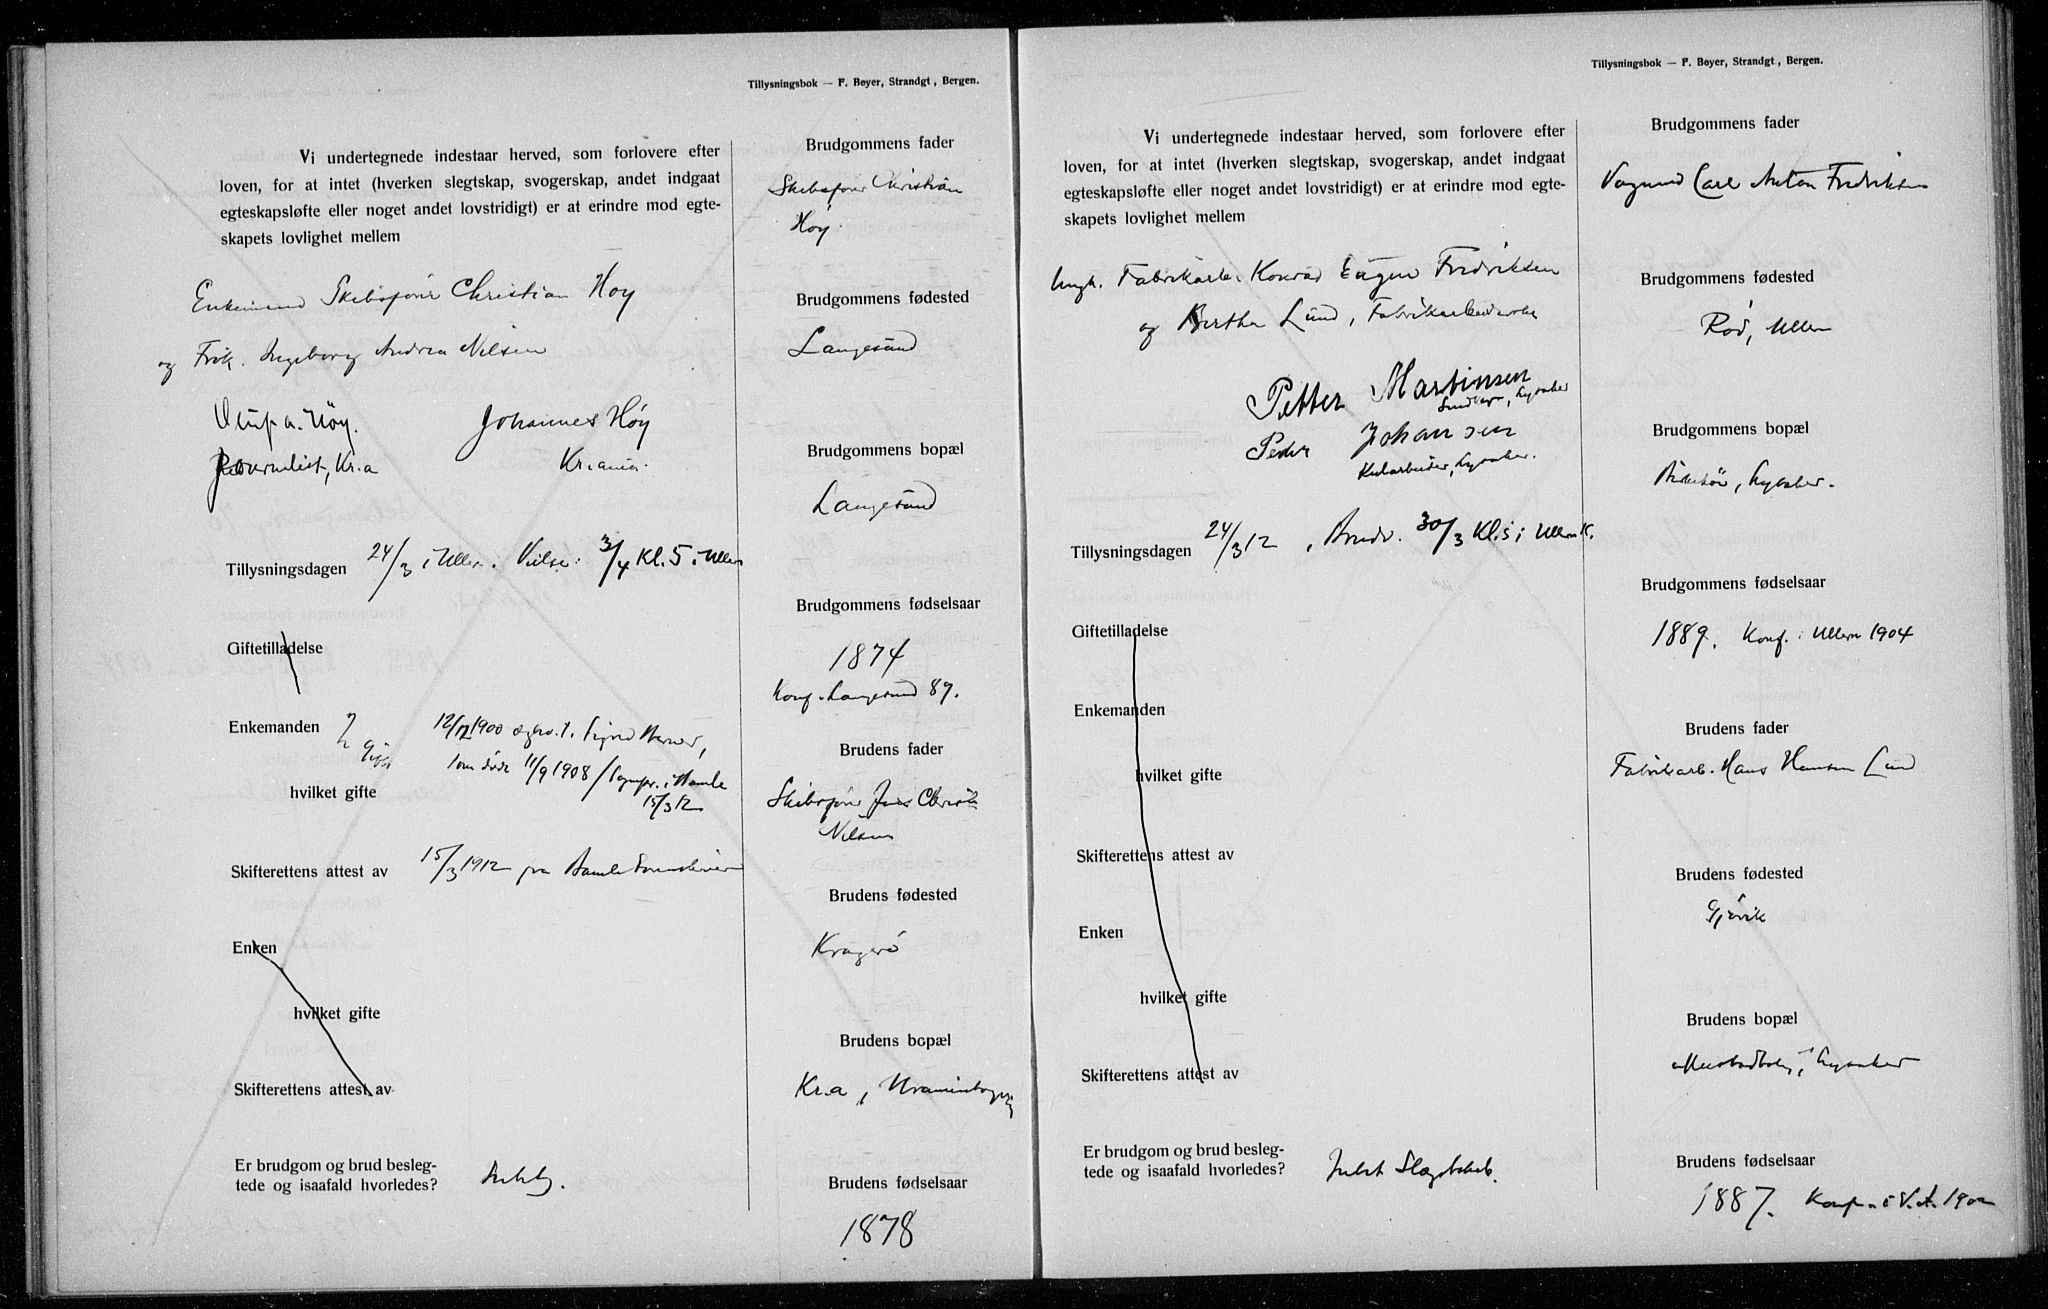 Tillysningsbok — F. Beyer, Strandgt, Bergen.
Vi undertegnede indestaar herved, som forlovere efter
loven, for at intet (hverken slegtskap, svogerskap, andet indgaat
egteskapsløfte eller noget andet lovstridigt) er at erindre mod egte-
skapets lovlighet mellem
Enkemand Skibsfører Christian Høy
og Frøk. Ingeborg Andrea Nilsen
Oluf A. Høy. Johannes Høy
Journalist, Kr.a Kr.ania.
Tillysningsdagen 24/3 i Ullern. Vielse: 3/4 Kl. 5. i Ullern
Giftetilladelse
Enkemanden 12/12 1900 Sigrid
hvilket gifte som døde 11/9 1908 / i Bamle
15/3 12
Skifterettens attest av 15/3 1912 fra Bamle Sorenskriver
Enken
hvilket gifte
Skifterettens attest av
Er brudgom og brud besleg-
tede og isaafald hvorledes?
Brudgommens fader
Skibsfører Christian
Høy
Brudgommens fødested
Langesund
Brudgommens bopæl
Langesund
Brudgommens fødselsaar
1874
Konf. Langesund 89.
Brudens fader
Skibsfører Jens Christian
Nilsen
Brudens fødested
Kragerø
Brudens bopæl
Kr.a,
Brudens fødselsaar
1878
Tillysningsbok — F. Beyer, Strandgt, Bergen.
Vi undertegnede indestaar herved, som forlovere efter
loven, for at intet (hverken slegtskap, svogerskap, andet indgaat
egteskapsløfte eller noget andet lovstridigt) er at erindre mod egte-
skapets lovlighet mellem
Ungk. Fabrikarb. Konrad Eugen Fredriksen
og Bertha Lund, Fabrikarbeiderske
Petter Martinsen
Lysaker
Peder Johansen
Lysaker.
Tillysningsdagen 24/3 12, Brudv. 30/3 Kl. 5 i Ullern K.
Giftetilladelse
Enkemanden
hvilket gifte
Skifterettens attest av
Enken
hvilket gifte
Skifterettens attest av
Er brudgom og brud besleg-
tede og isaafald hvorledes? Intet Slægtskab.
Brudgommens fader
Vognmd Carl Anton Fredriksen
Brudgommens fødested
Rød, Ullern
Brudgommens bopæl
Lysaker.
Brudgommens fødselsaar
1889. Konf. i Ullern 1904
Brudens fader
Fabrikarb. Hans Hansen Lund
Brudens fødested
Gjøvik
Brudens bopæl
Lysaker
Brudens fødselsaar
1887. Konf. i V.A. 1902